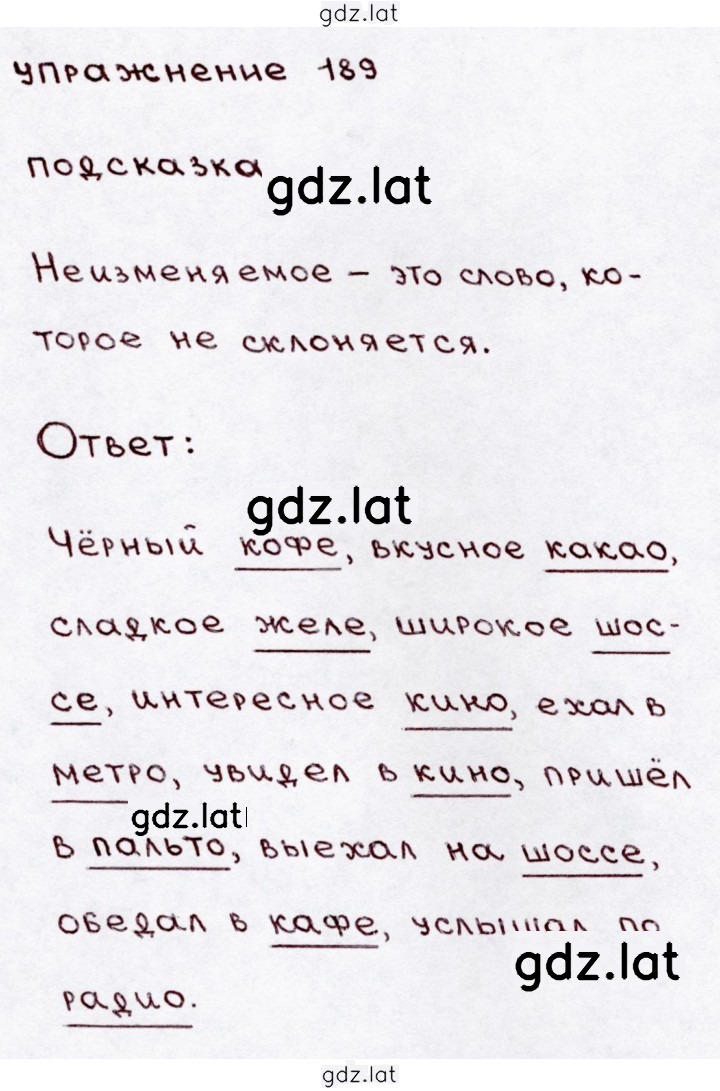 gdz.lat
упражнение 189
подсказка
gdz.lat
Неизменяемое – это слово, ко-
торое не склоняется.
Ответ:
gdz.lat
Чёрный кофе, вкусное какао,
сладкое желе, широкое шос-
се, интересное кино, ехал в
метро, увидел в кино, пришёл
gdz.lat
в пальто, выехал на шоссе,
обедал в кафе, услышал по
gdz.lat
радио.
gdz.lat